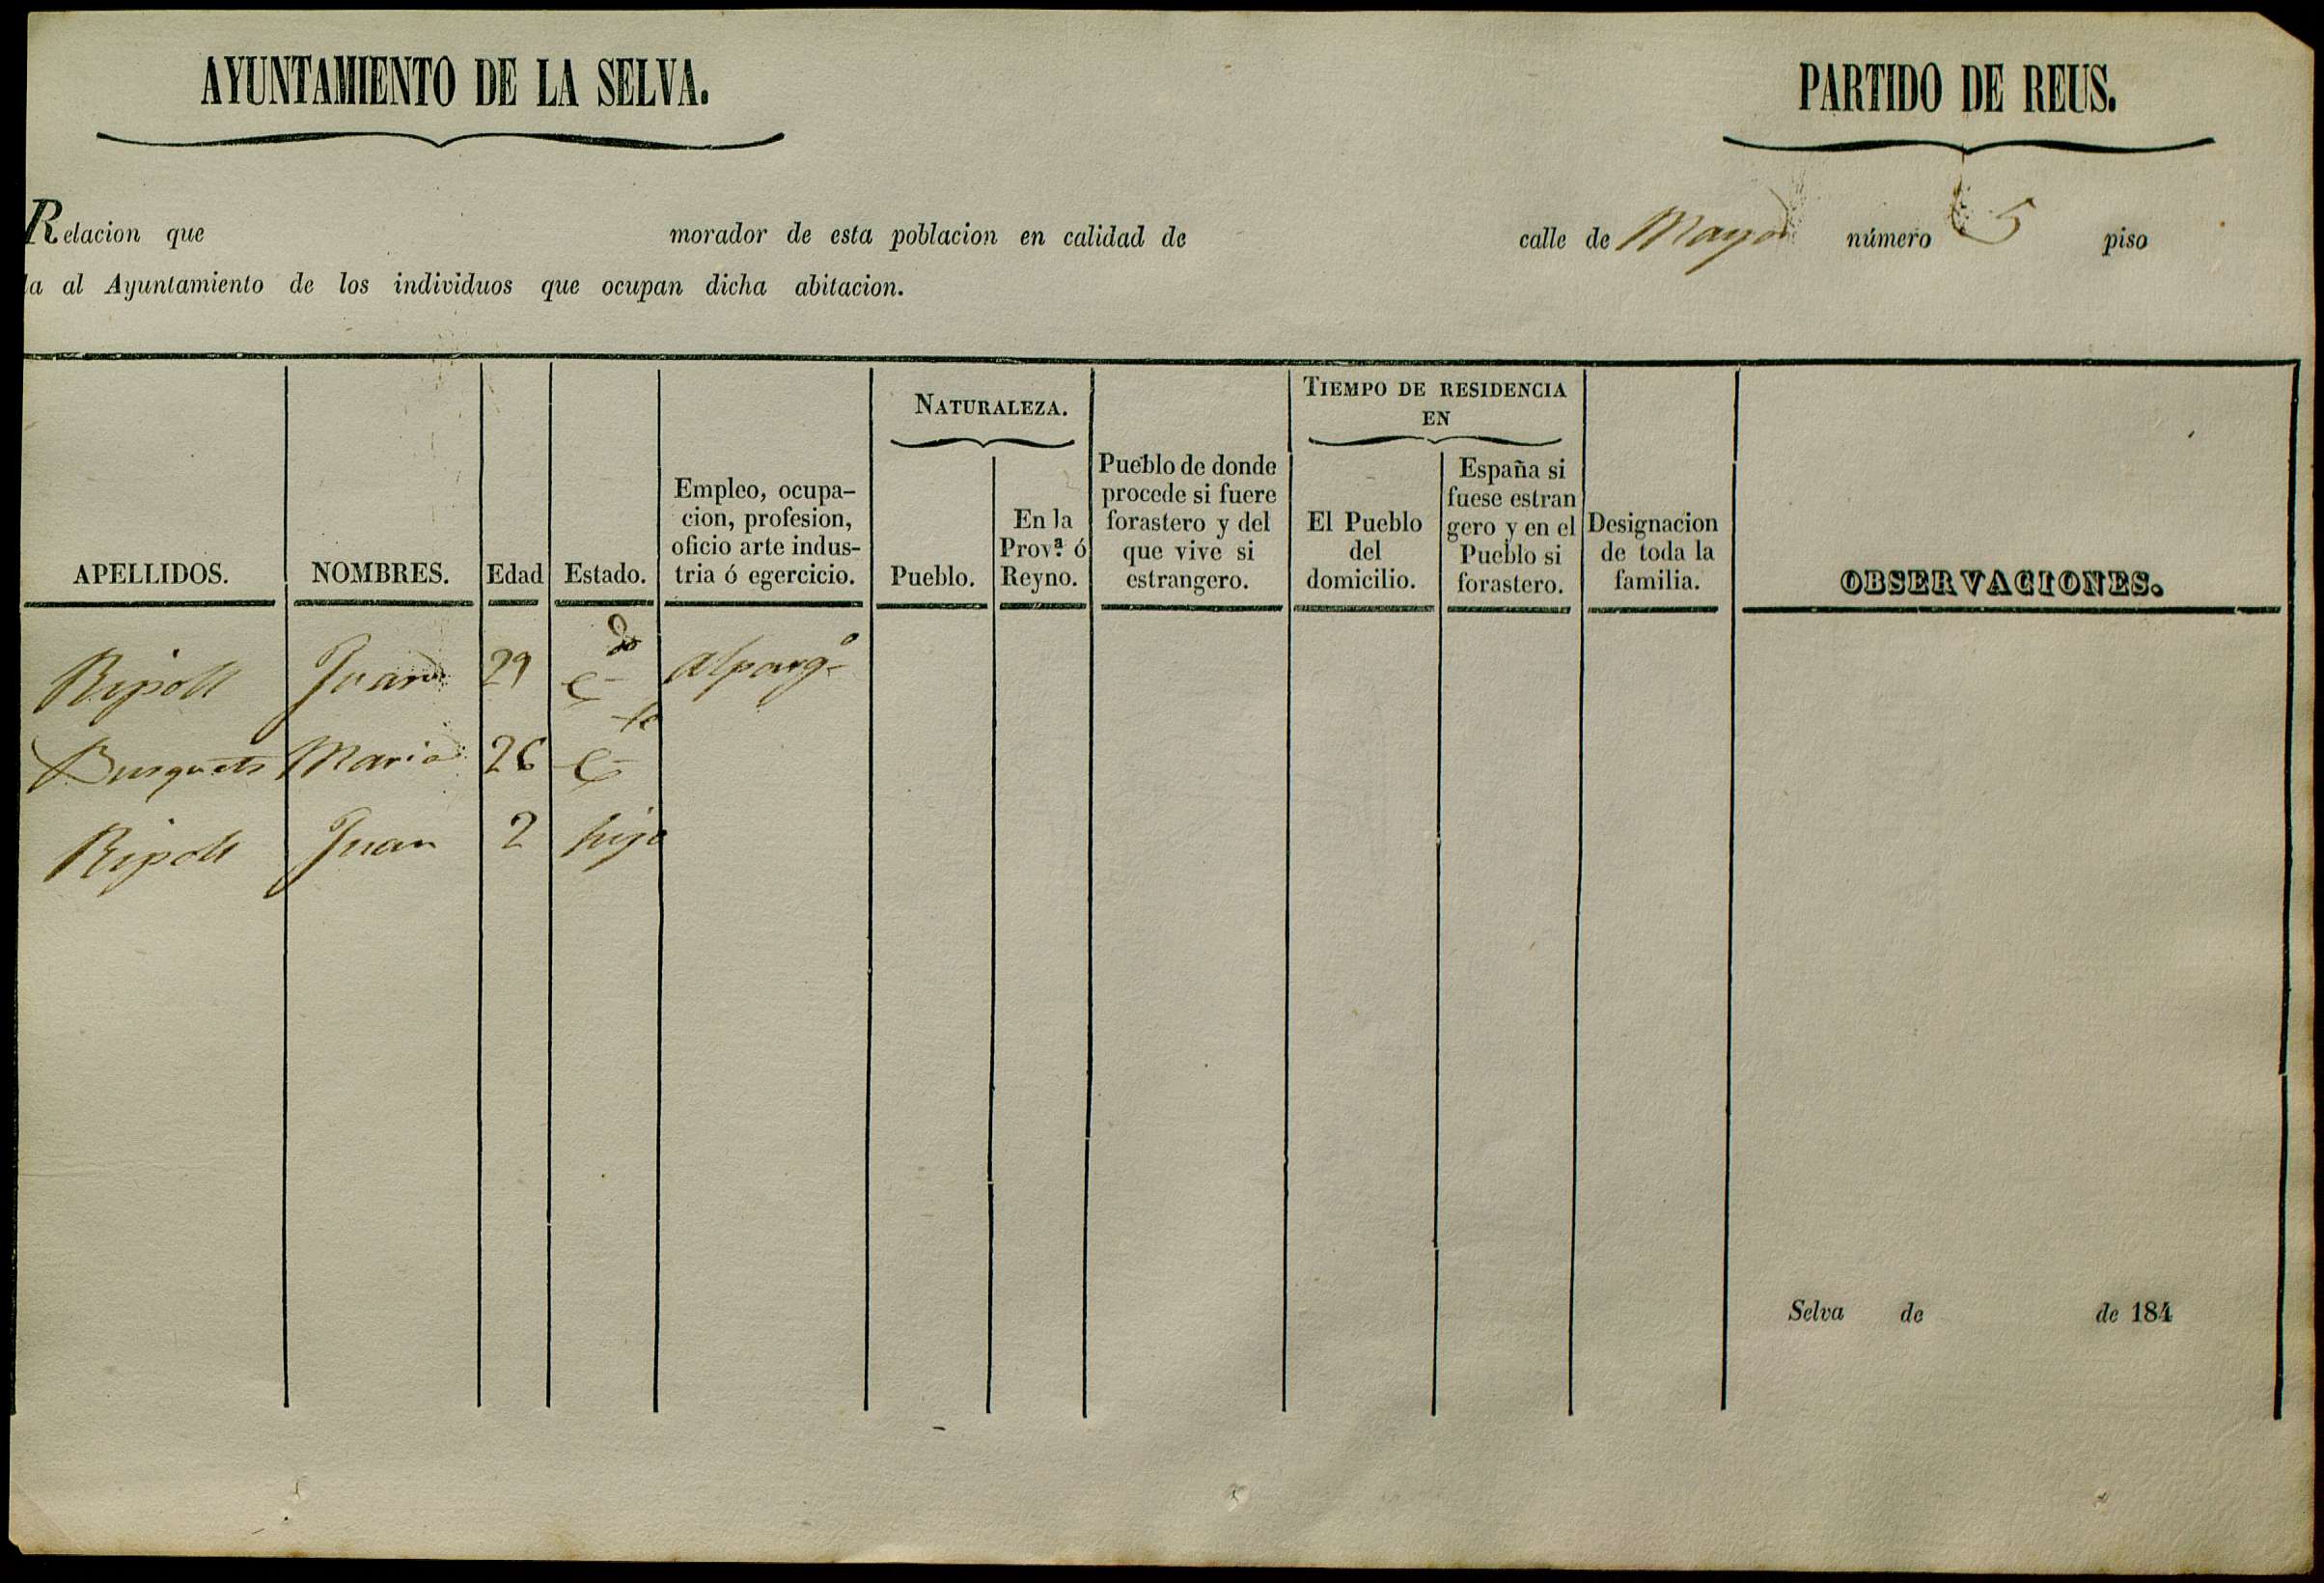 AYUNTAMIENTO DE LA SELVA.
PARTIDO DE REUS.
Relacion que morador de esta poblacion en calidad de calle de Mayor número 5 piso
la al Ayuntamiento de los individuos que ocupan dicha abitacion.
APELLIDOS.
NOMBRES.
Edad
Estado.
Empleo, ocupa-
cion, profesion,
oficio arte indus-
tria ó egercicio.
NATURALEZA.
Pueblo.
En la
Prov.ª ó
Reyno.
Pueblo de donde
procede si fuere
forastero y del
que vive si
estrangero.
TIEMPO DE RESIDENCIA
EN
El Pueblo
del
domicilio.
España si
fuese estran
gero y en el
Pueblo si
forastero.
Designacion
de toda la
familia.
OBSERVACIONES.
Ripoll Juan 29 Cdo Alpargo
Busquets Maria 26 C
Ripoll Juan 2 hijo
Selva de de 184